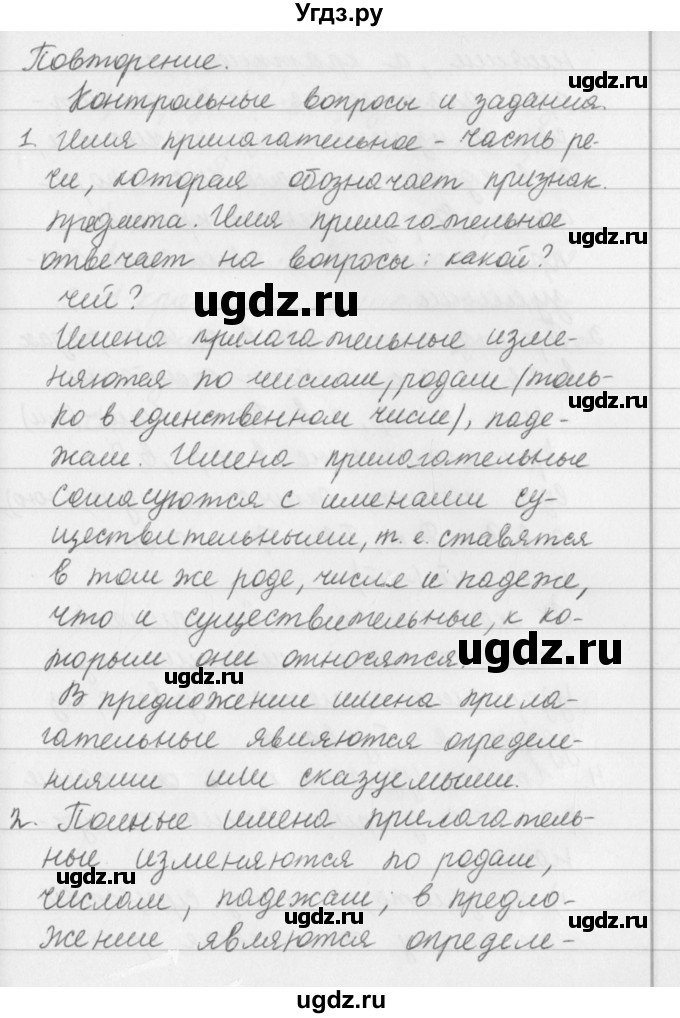 Угдз.ру
Повторение.
Контрольные вопросы и задания.
1. Имя прилагательное - часть ре-
чи, которая обозначает признак
предмета. Имя прилагательное
отвечает на вопросы: какой?
чей?
Имена прилагательные изме-
няются по числам, родам (толь-
ко в единственном числе), паде-
жам. Имена прилагательные
согласуются с именами су-
ществительными, т. е. ставятся
в том же роде, числе и падеже,
что и существительные, к ко-
торым они относятся.
В предложении имена прила-
гательные являются определе-
ниями или сказуемыми.
2. Полные имена прилагатель-
ные изменяются по родам,
числам, падежам; в предло-
жении являются определе-
ugdz.ru
ugdz.ru
ugdz.ru
ugdz.ru
ugdz.ru
ugdz.ru
ugdz.ru
ugdz.ru
ugdz.ru
ugdz.ru
ugdz.ru